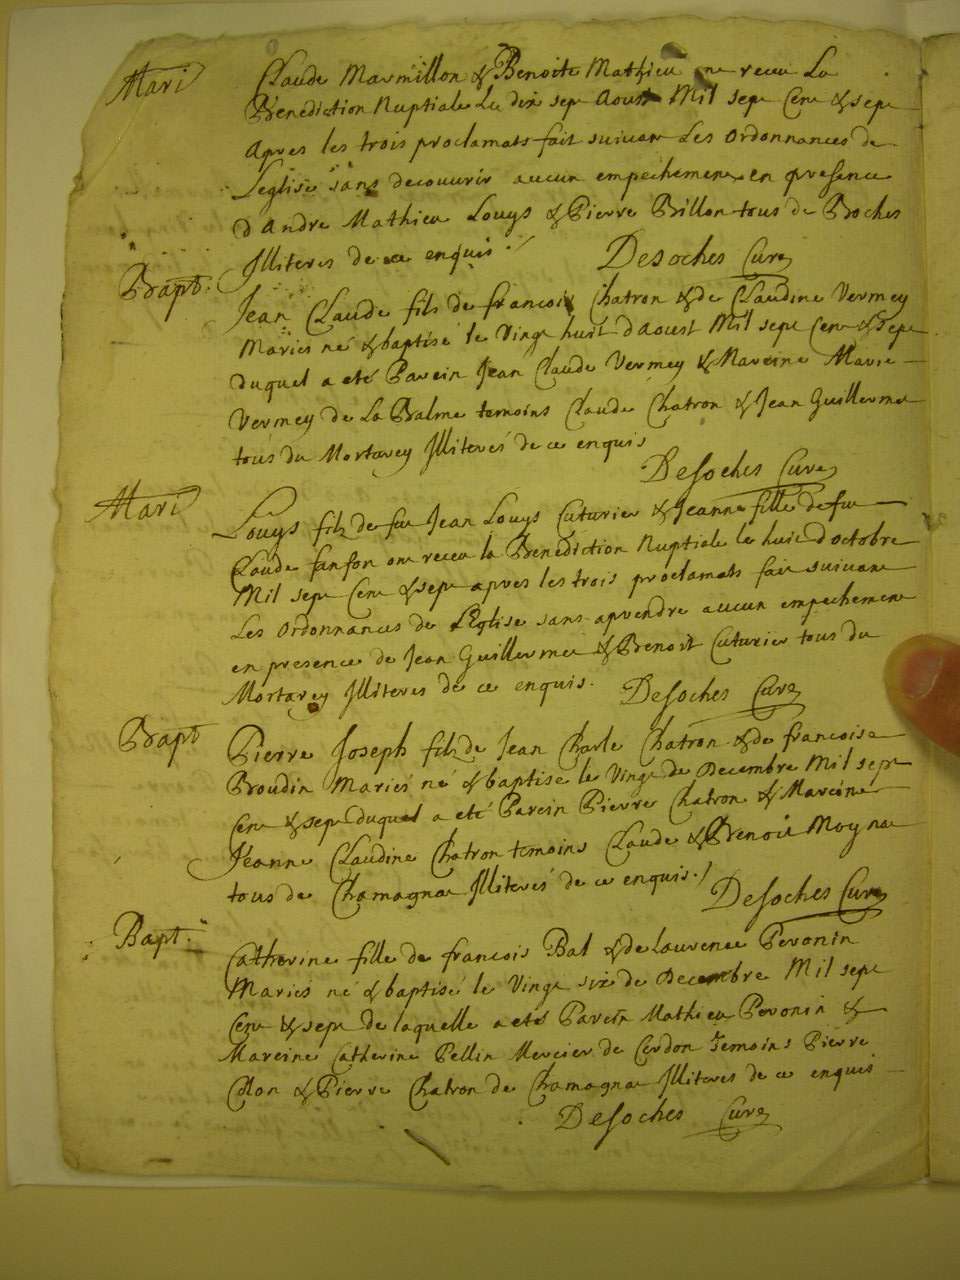 Mari Claude Marmillon & Benoite Mathieu one receu La
Benediction Nuptiale Le dix sept Aoust Mil sept Cent & sept
Apres les trois proclamats fait suivant Les ordonnances de
Leglise sans decouvrir aucun empechement en presence
d'Andre Mathieu Louys & Pierre Billon tous de Boches
Illiteres de ce enquis
Desoches Curé
Bapt. Jean Claude fils de francois Chatron & de Claudine Vermey
Mariés né & baptisé le Vingt huit d'Aoust Mil sept Cent & Sept
duquel a eté Parein Jean Claude Vermey & Mareine Marie
Vermey de La Balme temoins Claude Chatron & Jean Guillermet
tous du Mortarey Illiterés de ce enquis
Desoches Curé
Mari Louys filz de feu Jean Louys Cuturier & Jeanne fille de feu
Claude fanfon ont receu la Benediction Nuptiale le huit d'octobre
Mil sept Cent & sept apres les trois proclamats fait suivant
Les ordonnances de L'Eglise sans aprendre aucun empechement
en presence de Jean Guillermet & Benoit Cuturier tous du
Mortarey Illiteres de ce enquis.
Desoches Curé
Bapt Pierre Joseph filz de Jean Charle Chatron & de francoise
Boudin Mariés né & baptise le Vingt de Decembre Mil sept
Cent & sept duquel a eté Parein Pierre Chatron & Mareine
Jeanne Claudine Chatron temoins Claude & Benoit Moyna
tous de Chamagnat Illiterés de ce enquis./
Desoches Curé
Bapt. Catherine fille de francois Bal & de Laurence Peronin
Mariés né & baptisé le Vingt six de Decembre Mil sept
Cent & sept de laquelle a eté Parein Mathieu Peronin &
Mareine Catherine Pellin Mercier de Cerdon Temoins Pierre
Colon & Pierre Chatron de Chamagnat Illiteres de ce enquis
Desoches Curé